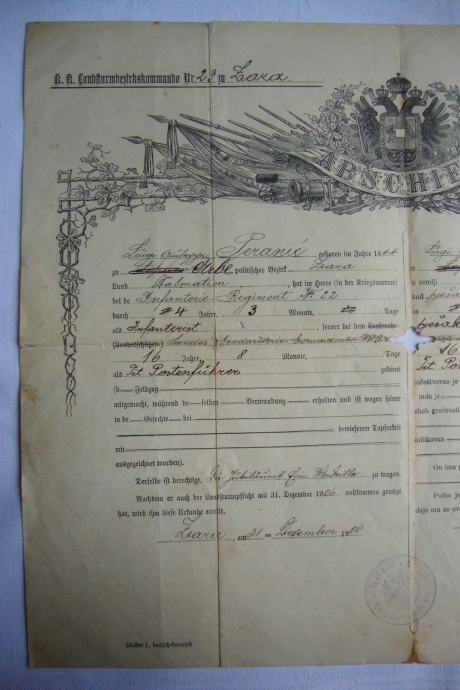 K. K. Landsturmbezirkskommando Nr. 23 zu Zara.
ABSCHIE
Peranić geboren im Jahre 1864
zu politischer Bezirk Zara
Land Dalmatien, hat im Heere (in der Kriegsmarine)
bei de Infanterie-Regiment No 22
durch 4 Jahre, 3 Monate, Tage
als Infanterist, ferner bei dem Landwehr-
(Landesschützen) Landes-Gendarmerie-Commando No 9
16 Jahre, 8 Monate, Tage
als Tit. Postenführer gedient
(d Feldzug
mitgemacht, während de selben Verwundung erhalten und ist wegen seiner
in de Gefechte bei
bewiesenen Tapferkeit
mit
ausgezeichnet worden).
Derselbe ist berechtigt, die Jubiläums zu tragen.
Nachdem er auch der Landsturmpflicht mit 31. Dezember 1906 vollkommen genügt
hat, wird ihm diese Urkunde erteilt.
Zara, am 31 Dezember 1906
Muster 1, deutsch-kroatisch.
u zemlji
kod pješa
pješak
16
Tit. Post
učestvovao je
tada je
zbog
odlikovan
On ima p
Pošto je
daje mu se ov